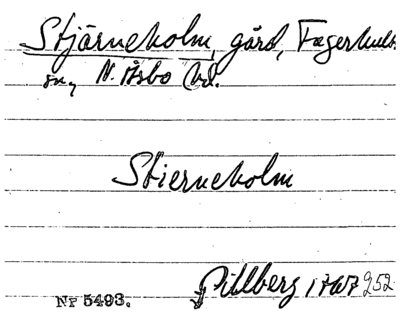 Stjärneholm, gård, Fagerhults
sn, N. Åsbo hd.
Stierneholm
Gillberg 1767 252
Nr 5493.